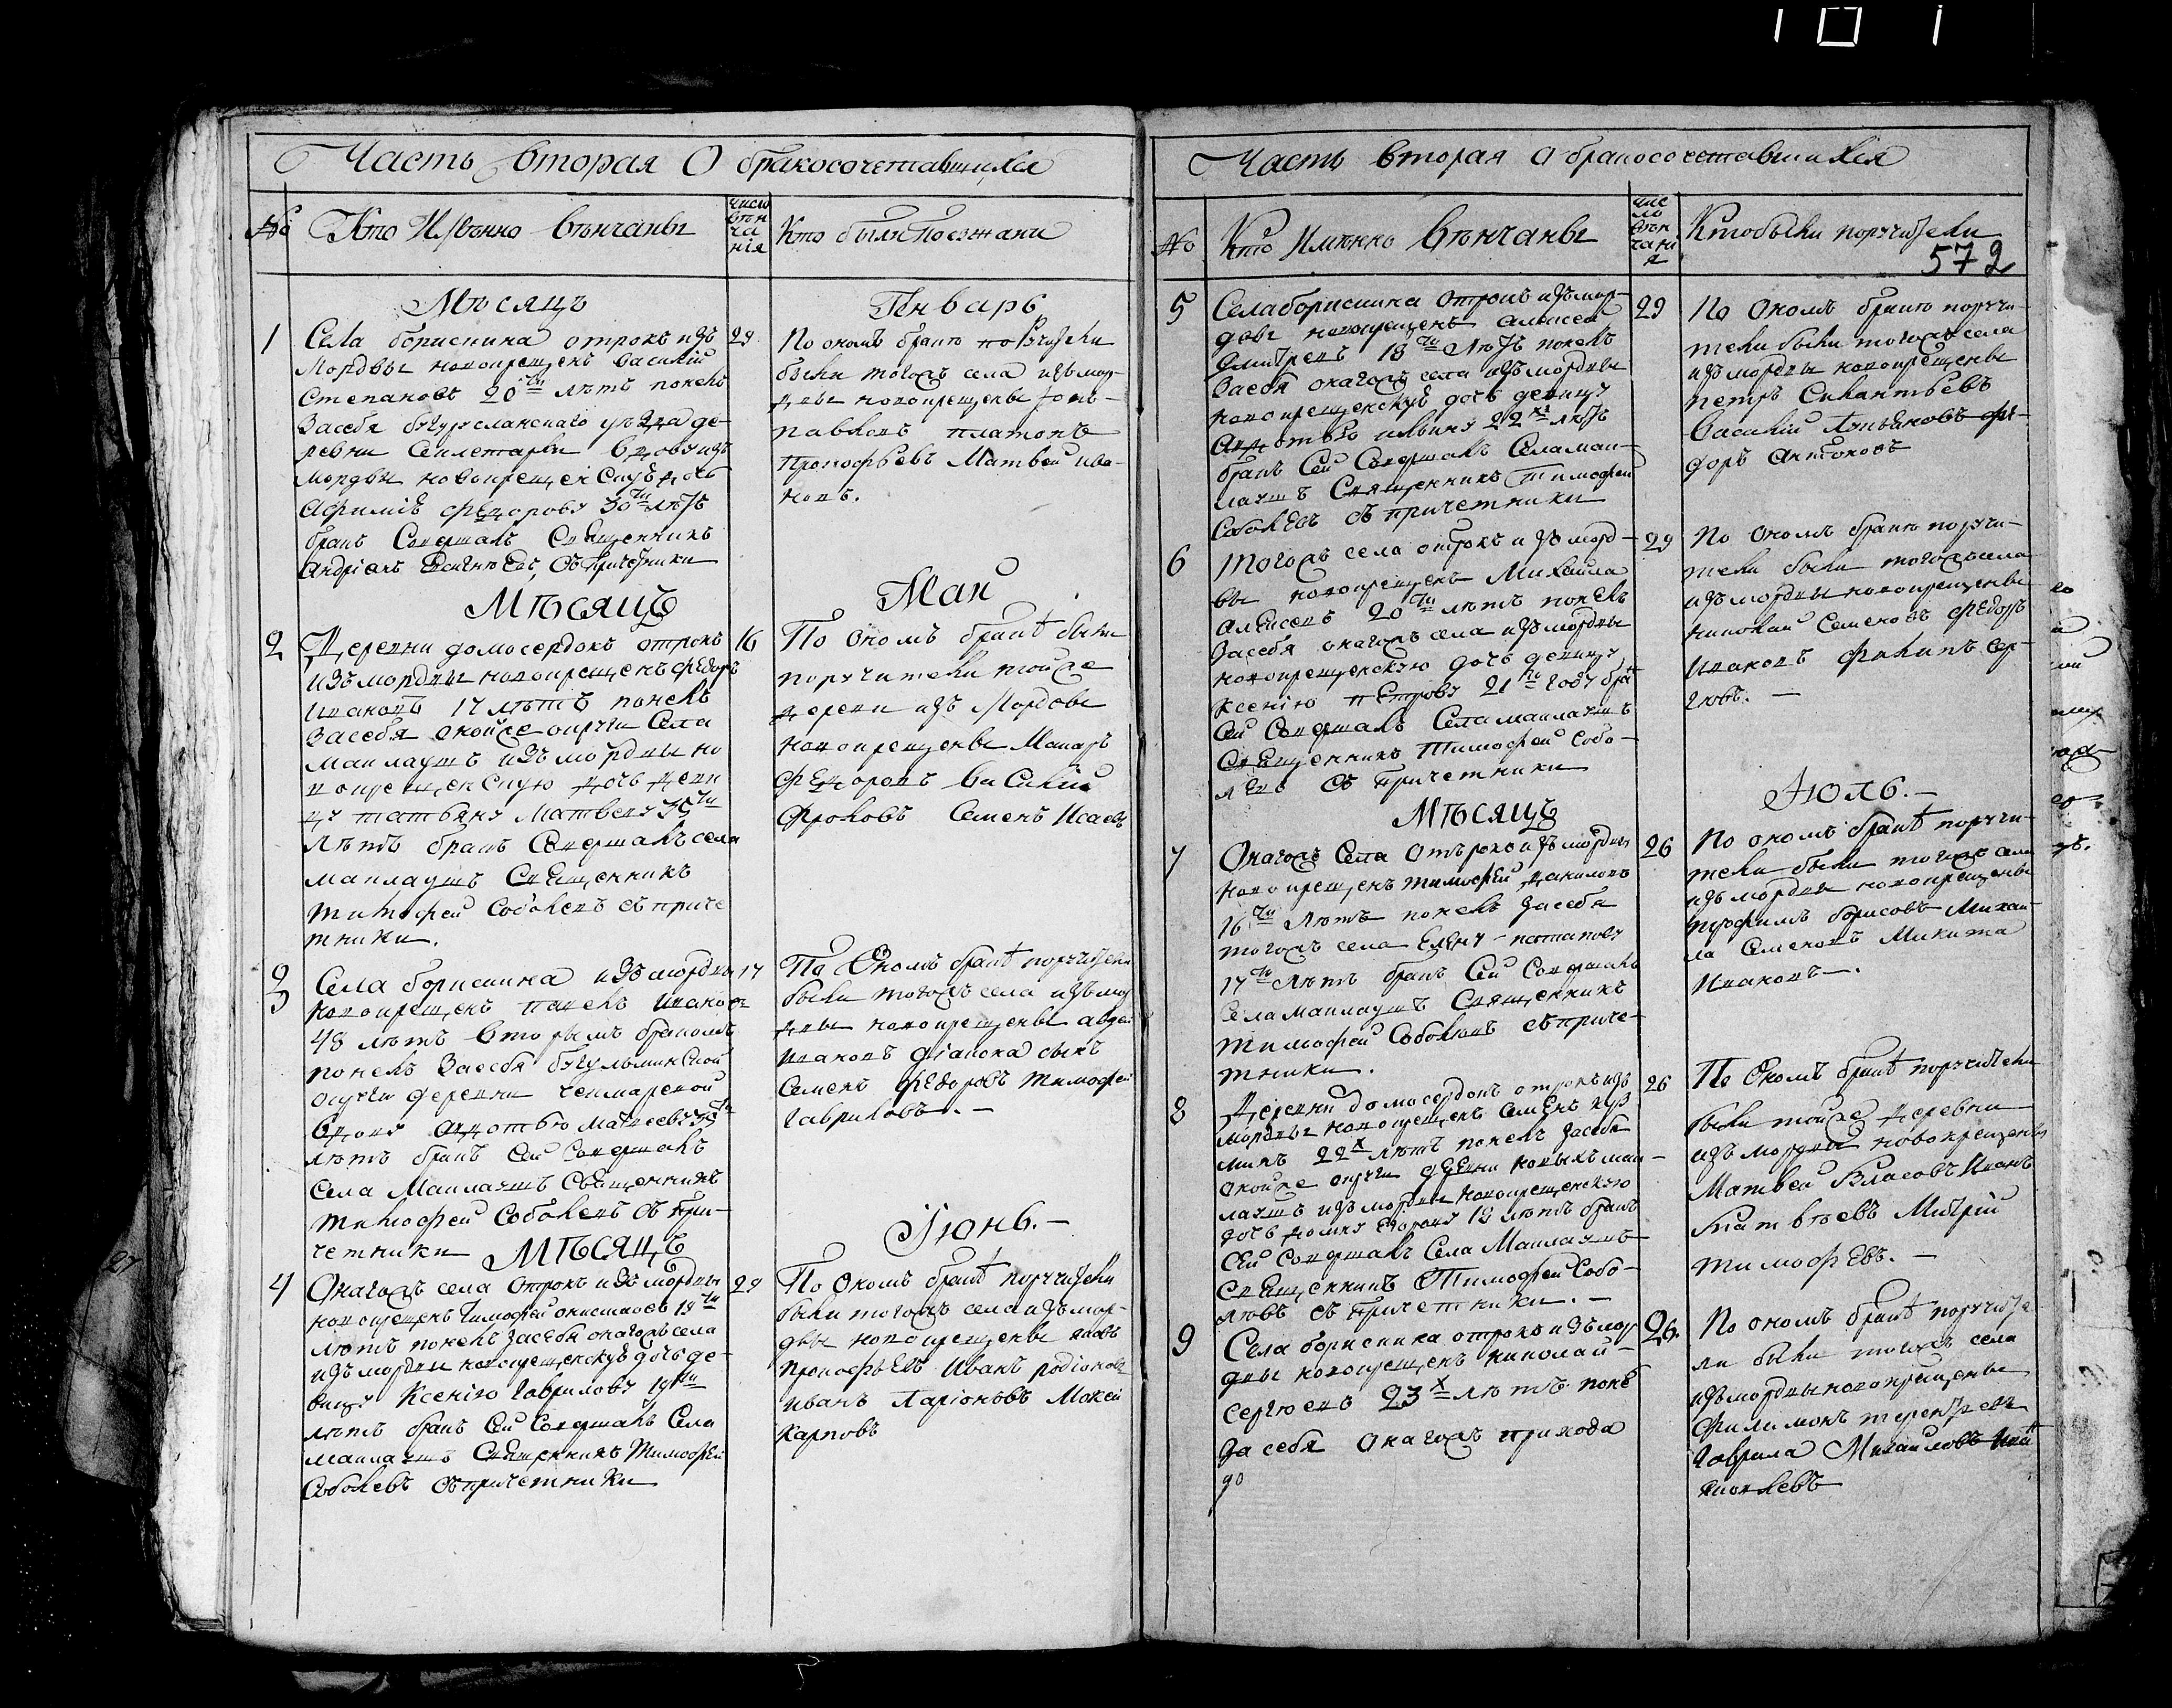 Часть вторая О бракосочетавшихся
№
Кто Имѣнно вѣнчаны
число вѣнчанія
Кто были поезжани
Мѣсяцъ Генварь
1
Села борискина отрокъ изъ
Мордвы новокрещенъ василий
Степановъ 20ти лѣтъ понелъ
Засебя бугурсланскаго уѣзда де-
ревни вдову изъ
мордвы новокрещенскую дочь
Афимию федорову 30ти лѣтъ
бракъ совершалъ священникъ
Андриянъ съ причетники
29
По ономъ браке поручители
были тогожъ села изъ мор-
двы новокрещены
павловъ платонъ
Прокофьевъ Матвей ива-
новъ.
Мѣсяцъ Маи
2
Деревни домосердокъ отрокъ
изъ мордвы новокрещенъ федоръ
ивановъ 17 лѣтъ понелъ
Засебя оной же округи Села
маклаушъ изъ мордвы но
вокрещенскую дочь деви
цу татьяну Матвеву 35ти
лѣтъ бракъ совершалъ села
маклаушъ священникъ
Тимофей Соболевъ съ приче
тники.
16
По ономъ бракѣ были
поручители тойже
деревни изъ Мордвы
новокрещены Макаръ
федоровъ василий
фроловъ Семенъ Исаевъ
3
Села борискина изъ мордвы
новокрещенъ павелъ ивановъ
48 лѣтъ вторымъ бракомъ
понелъ Засебя бугульминской
округи деревни
вдову авдотью матвеву 35ти
лѣтъ бракъ сей совершалъ
села Маклаушъ священникъ
тимофей Соболевъ съ при-
четники
17
По Ономъ бракѣ поручители
были тогожъ села изъ мор
двы новокрещены авдей
ивановъ сынъ
Семенъ федоровъ тимофей
Гавриловъ. -
Мѣсяцъ Июнь. -
4
Онагожъ села отрокъ изъ мордвы
новокрещенъ тимофей 18ти
лѣтъ понелъ засебя онагожъ села
изъ мордвы новокрещенскую дочь де-
вицу Ксению Гаврилову 19ти
лѣтъ бракъ сей совершалъ Села
маклаушъ священникъ Тимофей
Соболевъ съ причетники
29
По Ономъ бракѣ поручители
были тогожъ села изъ мор-
двы новокрещены яковъ
прокофьевъ Иванъ родионовъ
иванъ Ларионовъ Мокей
карповъ
Часть вторая О бракосочетавшихся
№
Кто Имѣнно вѣнчаны
число вѣнчания
Кто были поручители
572
5
Села борискина отрокъ изъ мор-
двы новокрещенъ алексей
дмитревъ 18ти лѣтъ понелъ
Засебя онагожъ села изъ мордвы
новокрещенскую дочь девицу
авдотью ильину 22хъ лѣтъ
бракъ сей совершалъ Села мак-
лаушъ Священникъ Тимофей
Соболевъ съ причетники
29
По Ономъ браке поручи-
тели были тогожъ села
изъ мордвы новокрещены
петръ Силантьевъ
василий Лукьяновъ фе-
доръ антоновъ
6
Тогожъ села отрокъ изъ морд-
вы новокрещенъ Михайла
алексевъ 20ти лѣтъ понелъ
Засебя онагожъ села изъ мордвы
новокрещенскую дочь девицу
ксению петрову 21го году бракъ
сей совершалъ Села маклаушъ
Священникъ Тимофей Собо-
левъ съ причетники
29
По Ономъ браке поручи-
тели были тогожъ села
изъ мордвы новокрещены
николай Семеновъ федоръ
ивановъ филипъ сер-
гѣевъ. -
Мѣсяцъ Июль. -
7
Онагожъ Села отрокъ изъ мордвы
новокрещенъ тимофей даниловъ
16ти лѣтъ понелъ засебя
тогожъ села Елену потапову
17ти лѣтъ бракъ сей совершалъ
Села маклаушъ Священникъ
Тимофей Соболевъ съ приче-
тники.
26
По ономъ бракѣ поручи-
тели были тогожъ села
изъ мордвы новокрещены
трофимъ борисовъ Михай-
ла Семеновъ Микита
ивановъ.
8
Деревни домосердокъ отрокъ изъ
мордвы новокрещенъ Семенъ куз-
минъ 22х лѣтъ понелъ засебя
онойже округи деревни новыхъ мак-
лаушъ изъ мордвы новокрещенскую
дочь домну егорову 18 лѣтъ бракъ
Сей совершалъ Села Маклаушъ
Священникъ Тимофей Собо-
левъ съ причетники. -
26
По Ономъ бракѣ поручители
были тойже деревни
изъ мордвы новокрещены
Матвей Власовъ Иванъ
Матвѣевъ Митрий
тимофѣвъ. -
9
Села борискина отрокъ изъ мор
двы новокрещенъ николай
Сергѣевъ 23х лѣтъ поне
за себя онагожъ прихода
до
26.
По ономъ бракѣ поручите-
ли были тогожъ села
изъ мордвы новокрещены
филимонъ терентьевъ
гаврила Михайловъ